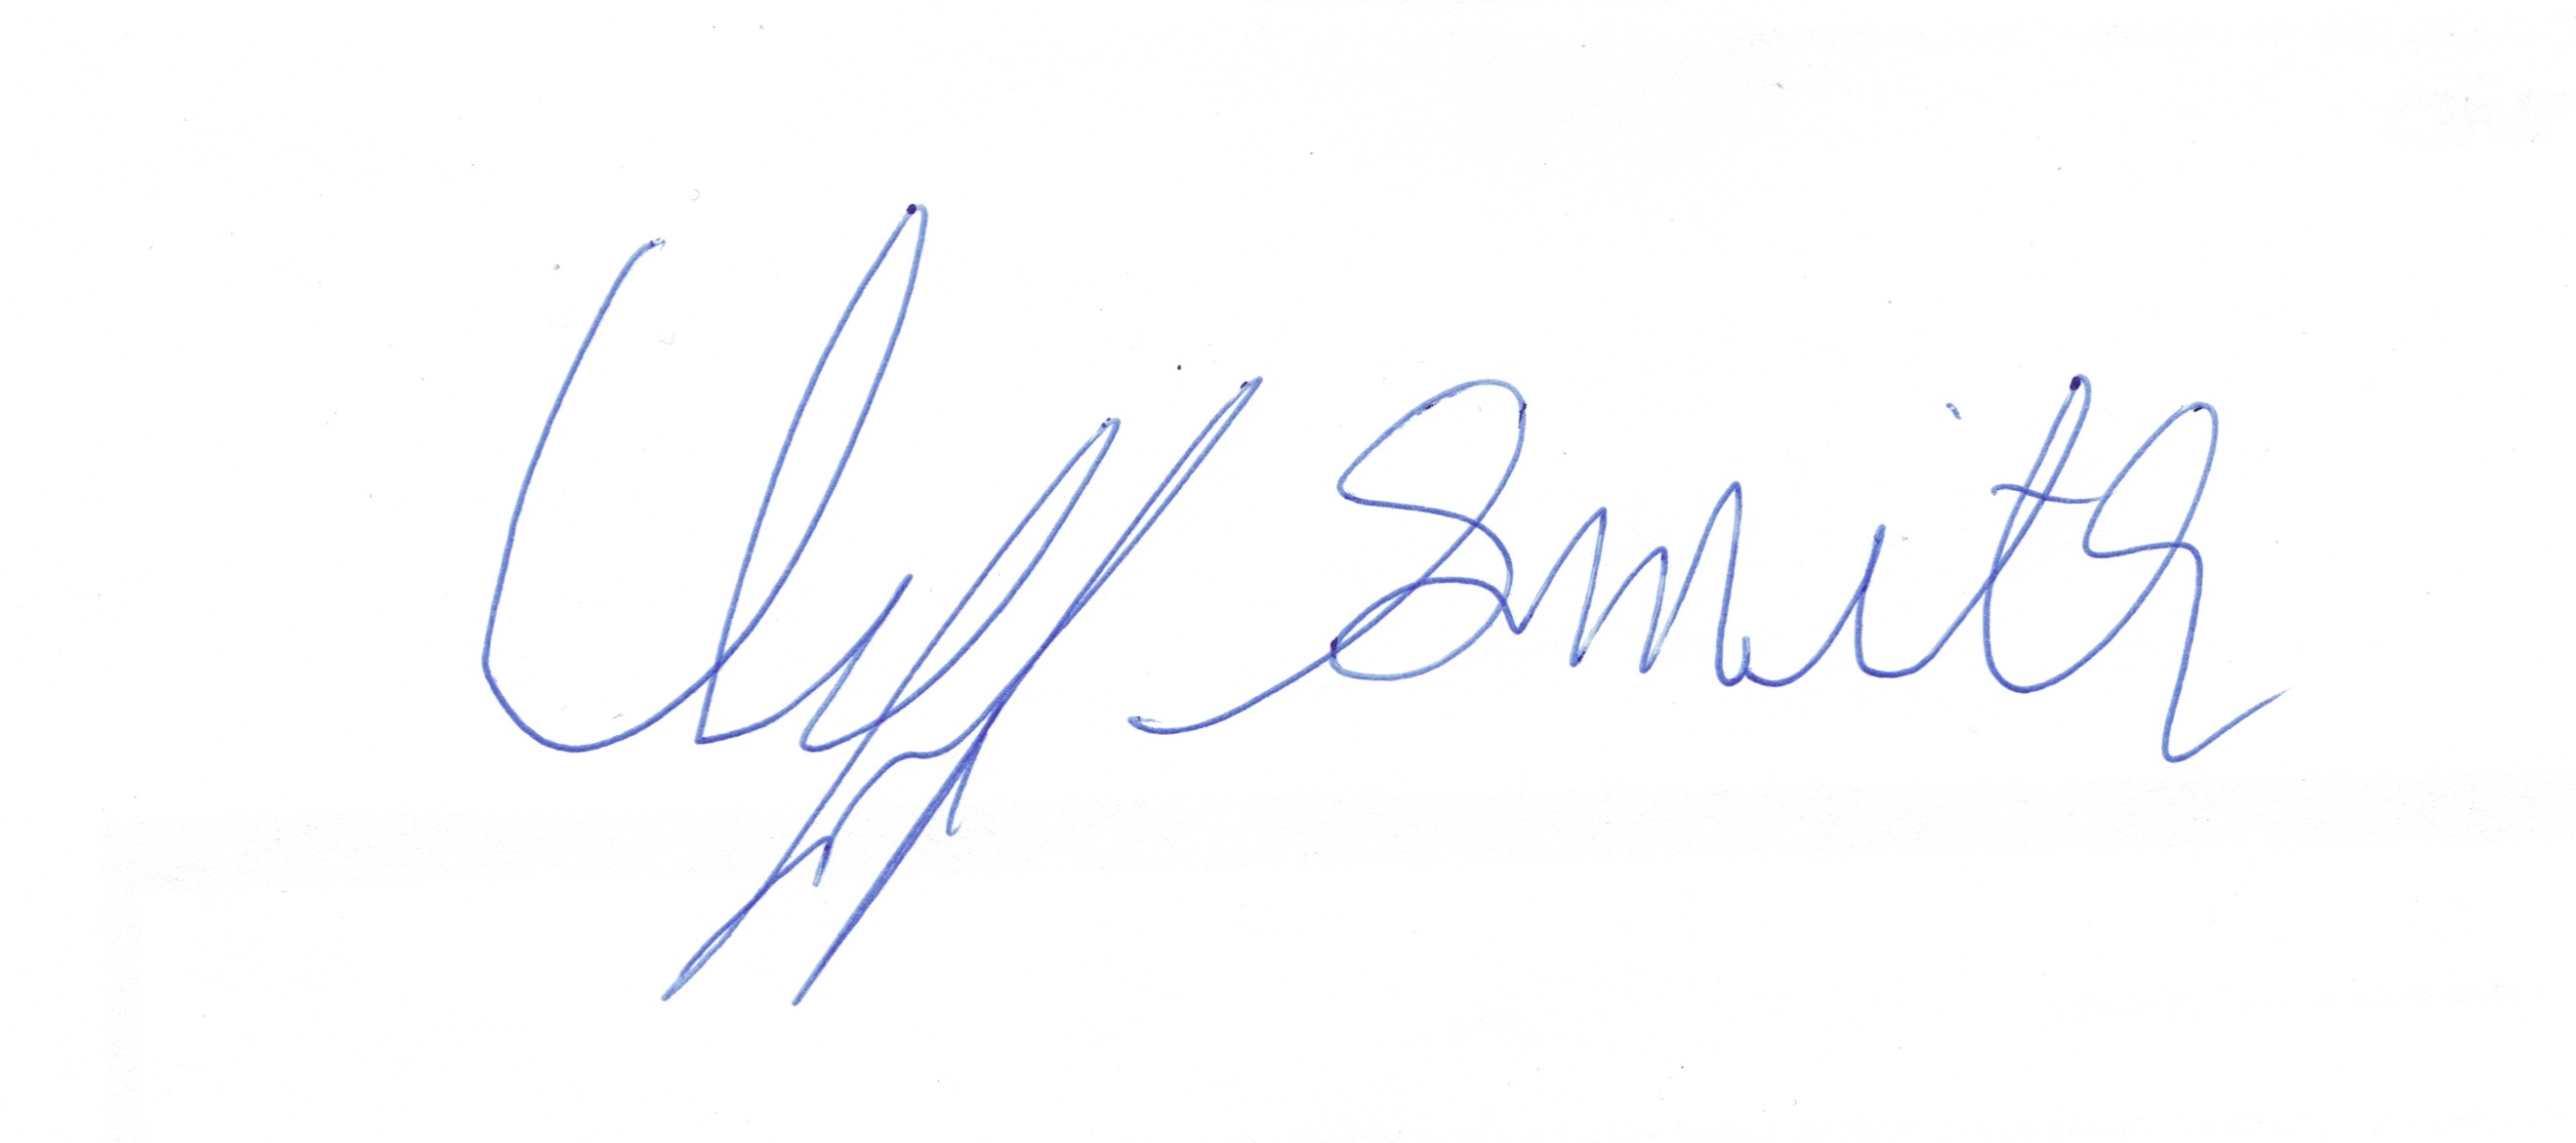 Cliff Smith